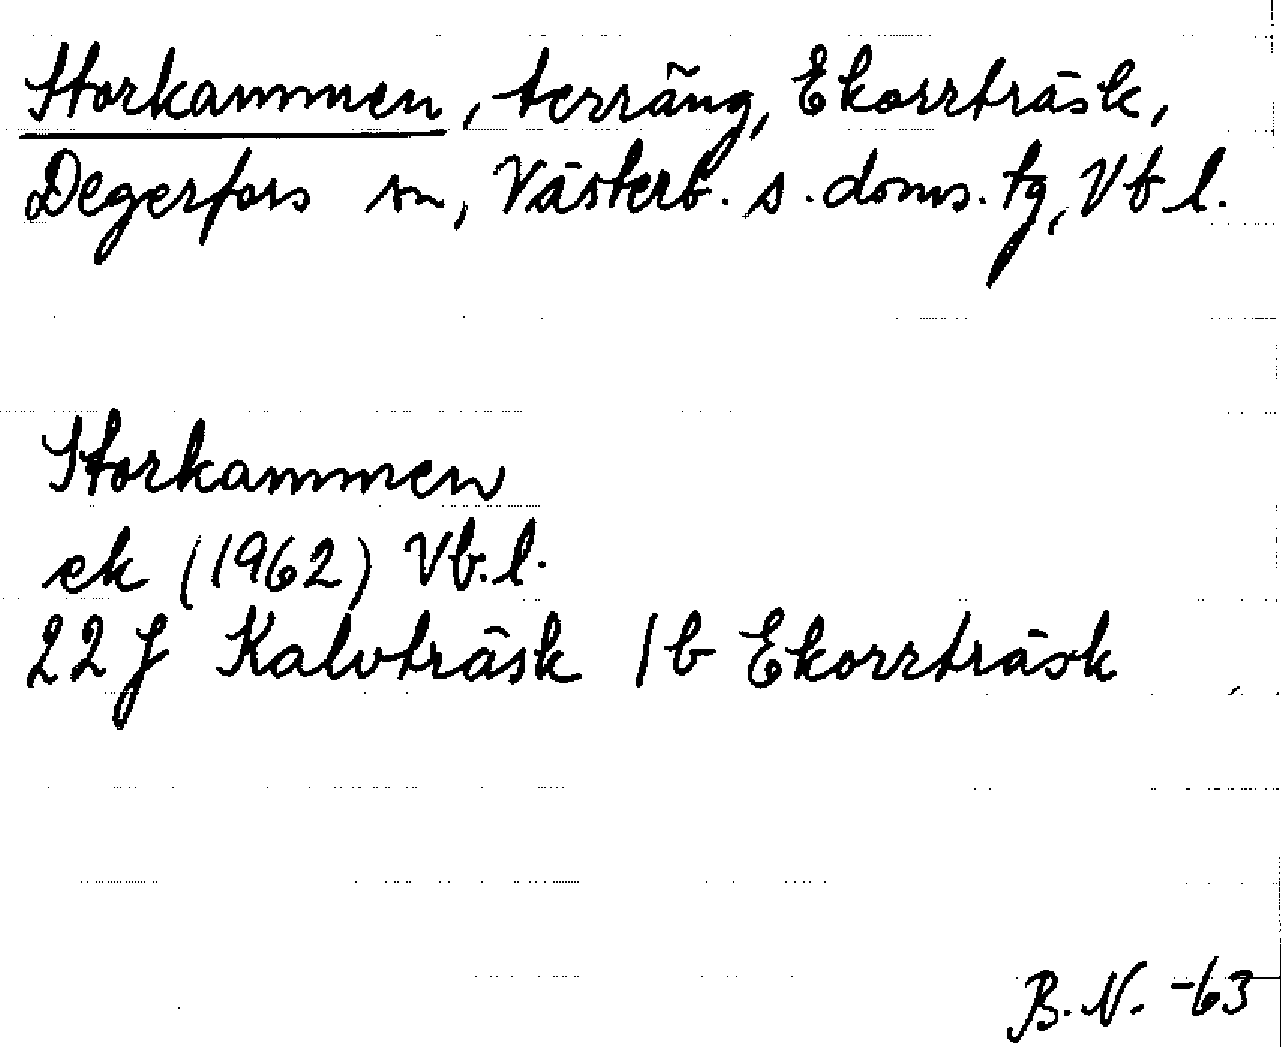 Storkammen, terräng, Ekorrträsk,
Degerfors sn, Västerb. s. doms. tg, Vb l.
Storkammen
ek (1962) Vb. l.
22 J Kalvträsk 1 b Ekorrträsk
B. N. -63